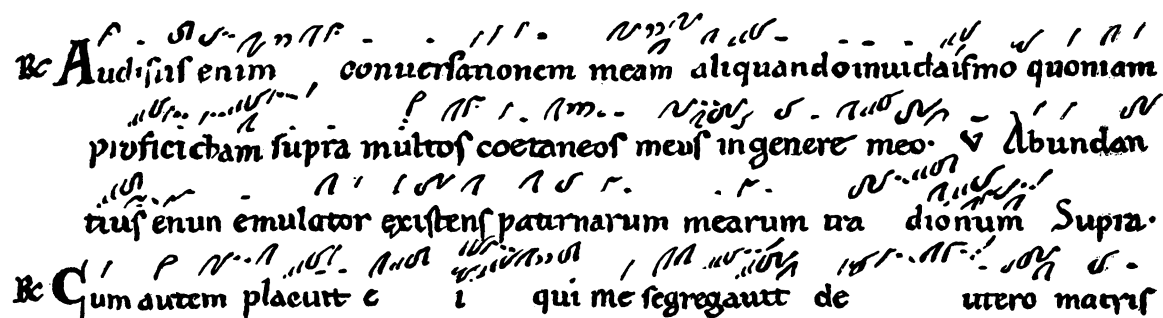 ℞ Audisūs enim conuersationem meam aliquando in iudaismo quoniam
proficiebam supra multos coetaneos meos in genere meo. ℣ Abundan
tius enim emulator existens paternarum mearum tra dionum Supra.
℞ Cum autem placuit e i qui me segregauit de utero matris